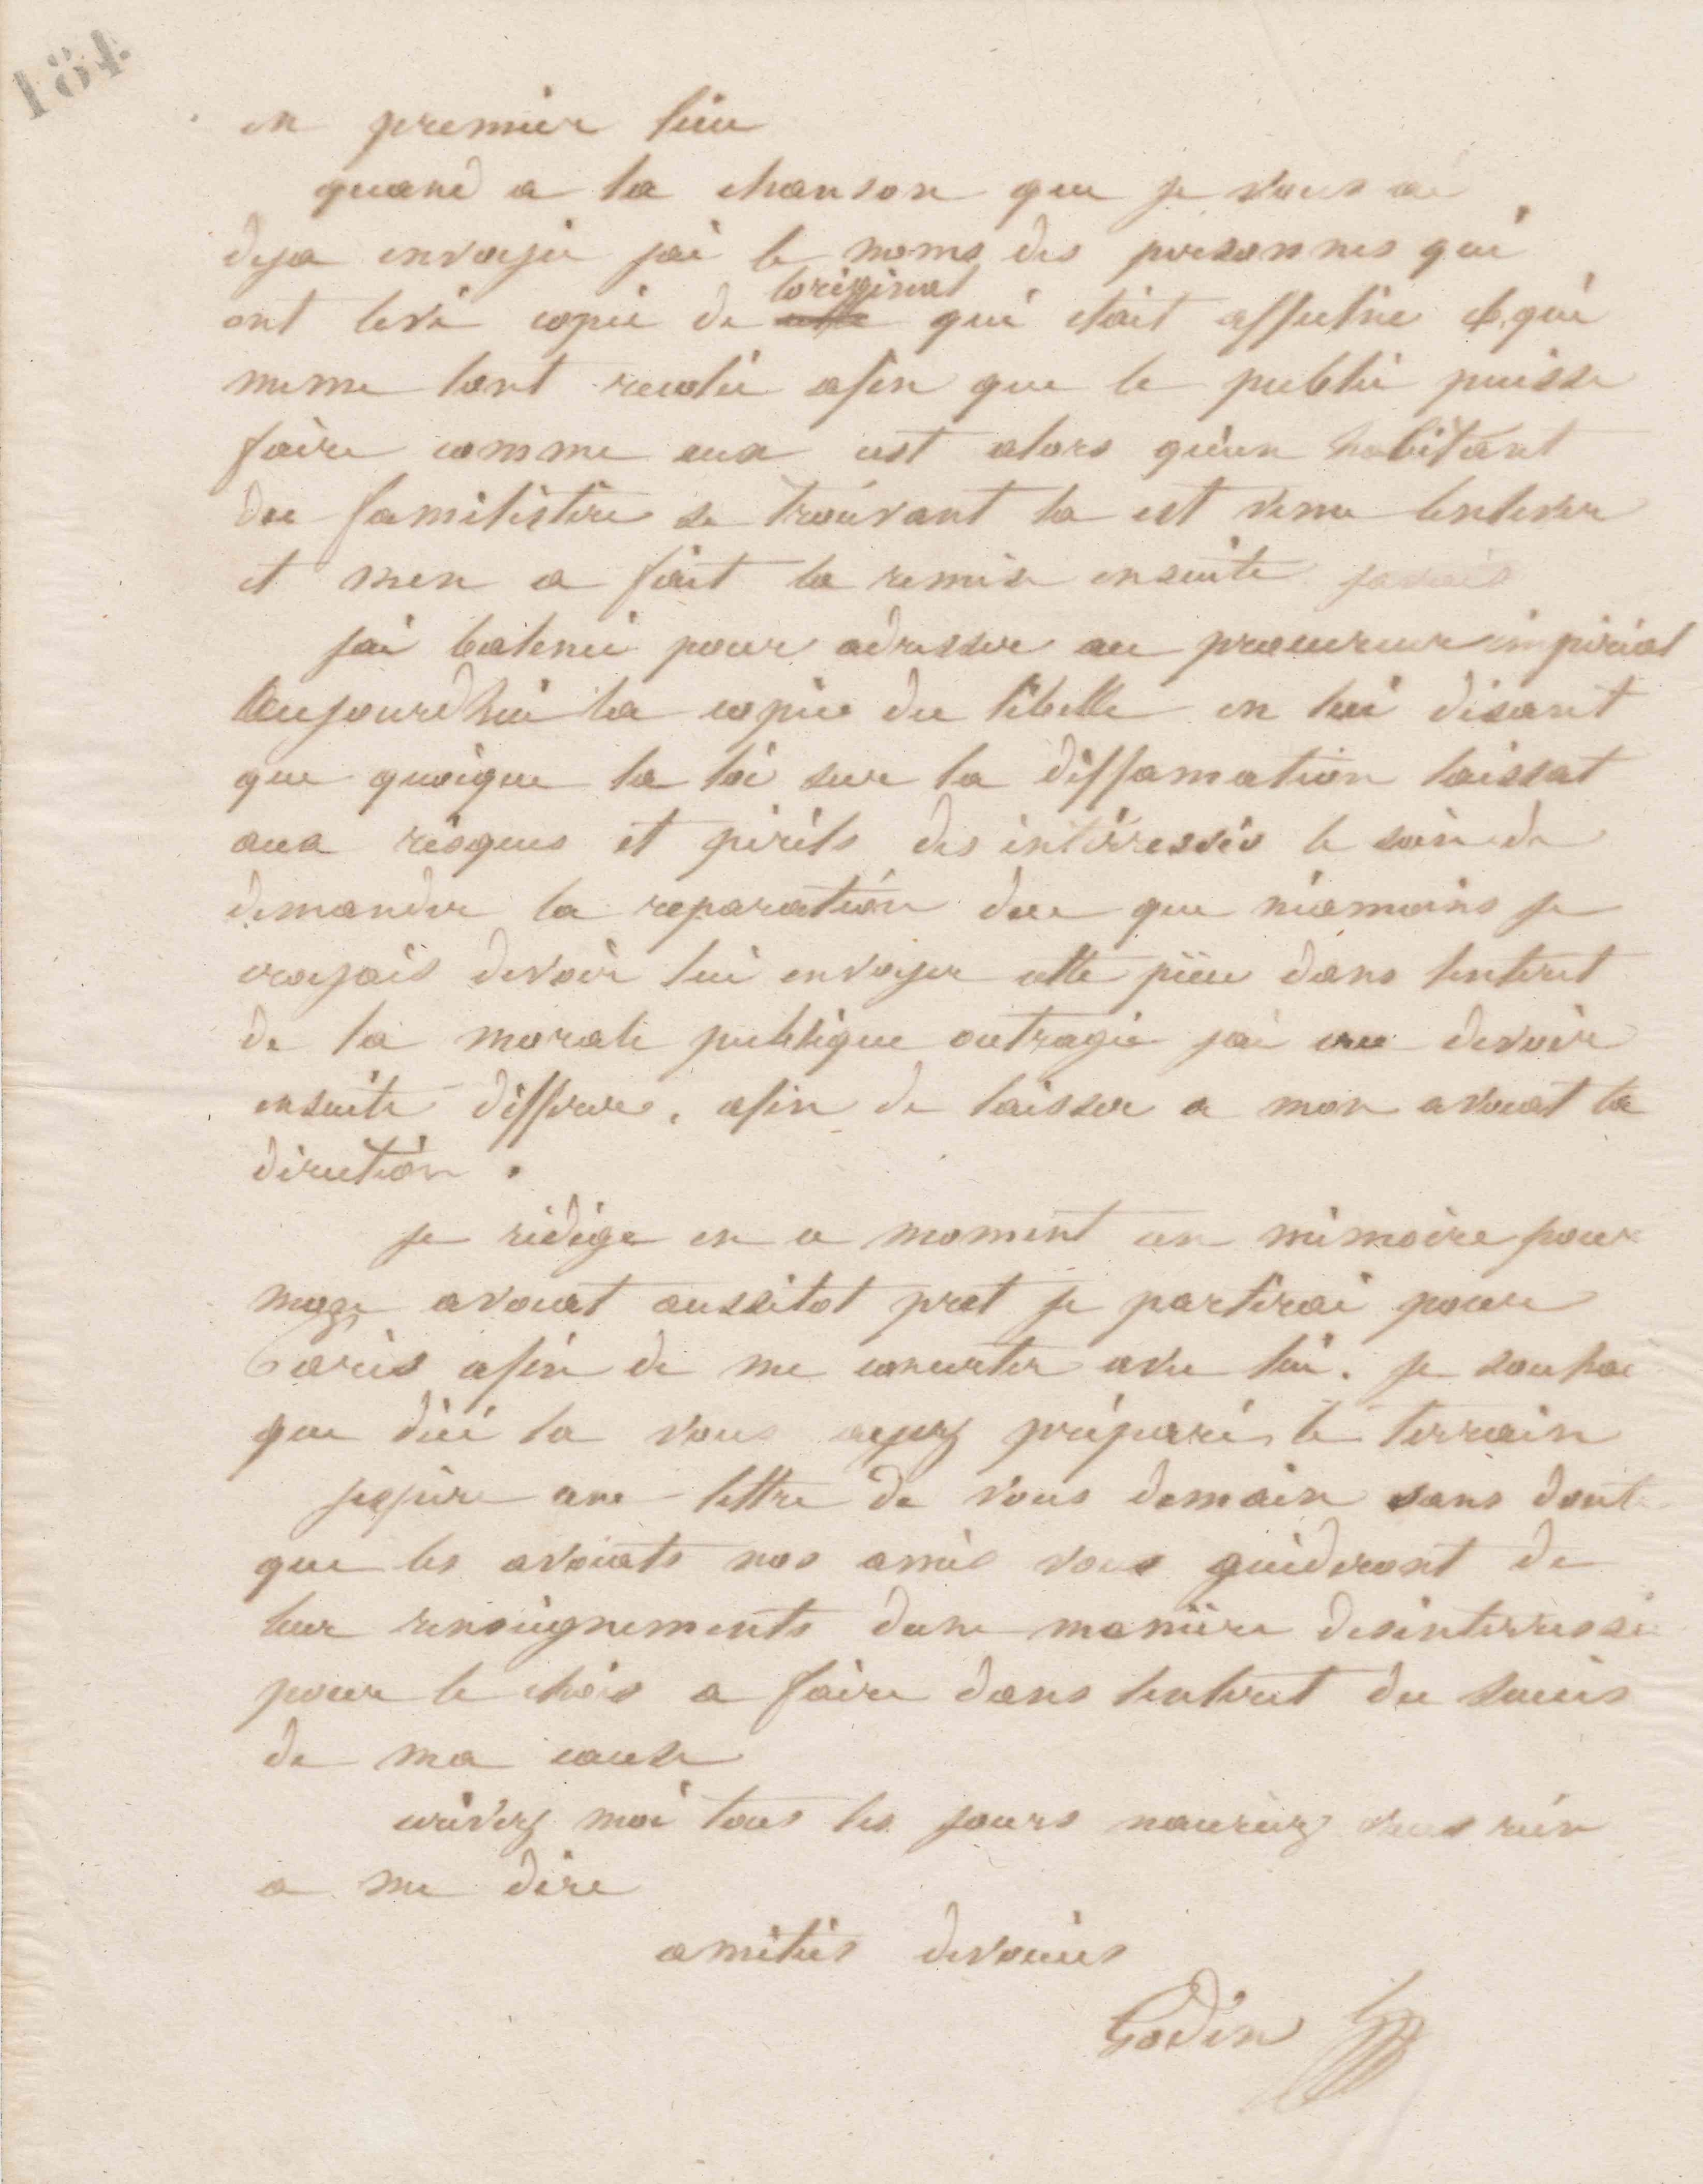 184
en premier lieu
quand a la chanson que je vous ai
deja envoyée jai le noms des personnes qui
ont levé copie de loriginal
celle qui etait affichée & qui
meme lont recolée afin que le public puisse
faire comme eux cest alors qu'un habitant
du familistère se trouvant la est venu lenlever
et men a fait la remise ensuite javais
jai pour adresser au procureur impérial
aujourdhui la copie du libelle en lui disant
que quoique la loi sur la diffamation laissat
aux risques et périls des intérressés le soin de
demander la reparation due que néamoins je
croyais devoir lui envoyer cette pièce dans linteret
de la morale publique outragée jai cru devoir
ensuite differer, afin de laisser a mon avocat la
direction.
je rédige en ce moment un mémoire pour
mon avocat aussitot pret je partirai pour
Paris afin de me concerter avec lui. je souhai
que dici la vous ayez préparé le terrain
jespère une lettre de vous demain sans doute
que les avocats nos amis vous guideront de
leur renseignements dune manière desinterressée
pour le choix a faire dans linteret du succès
de ma cause
ecrivez moi tous les jours nauriez vous rien
a me dire
amitiés dévouées
Godin